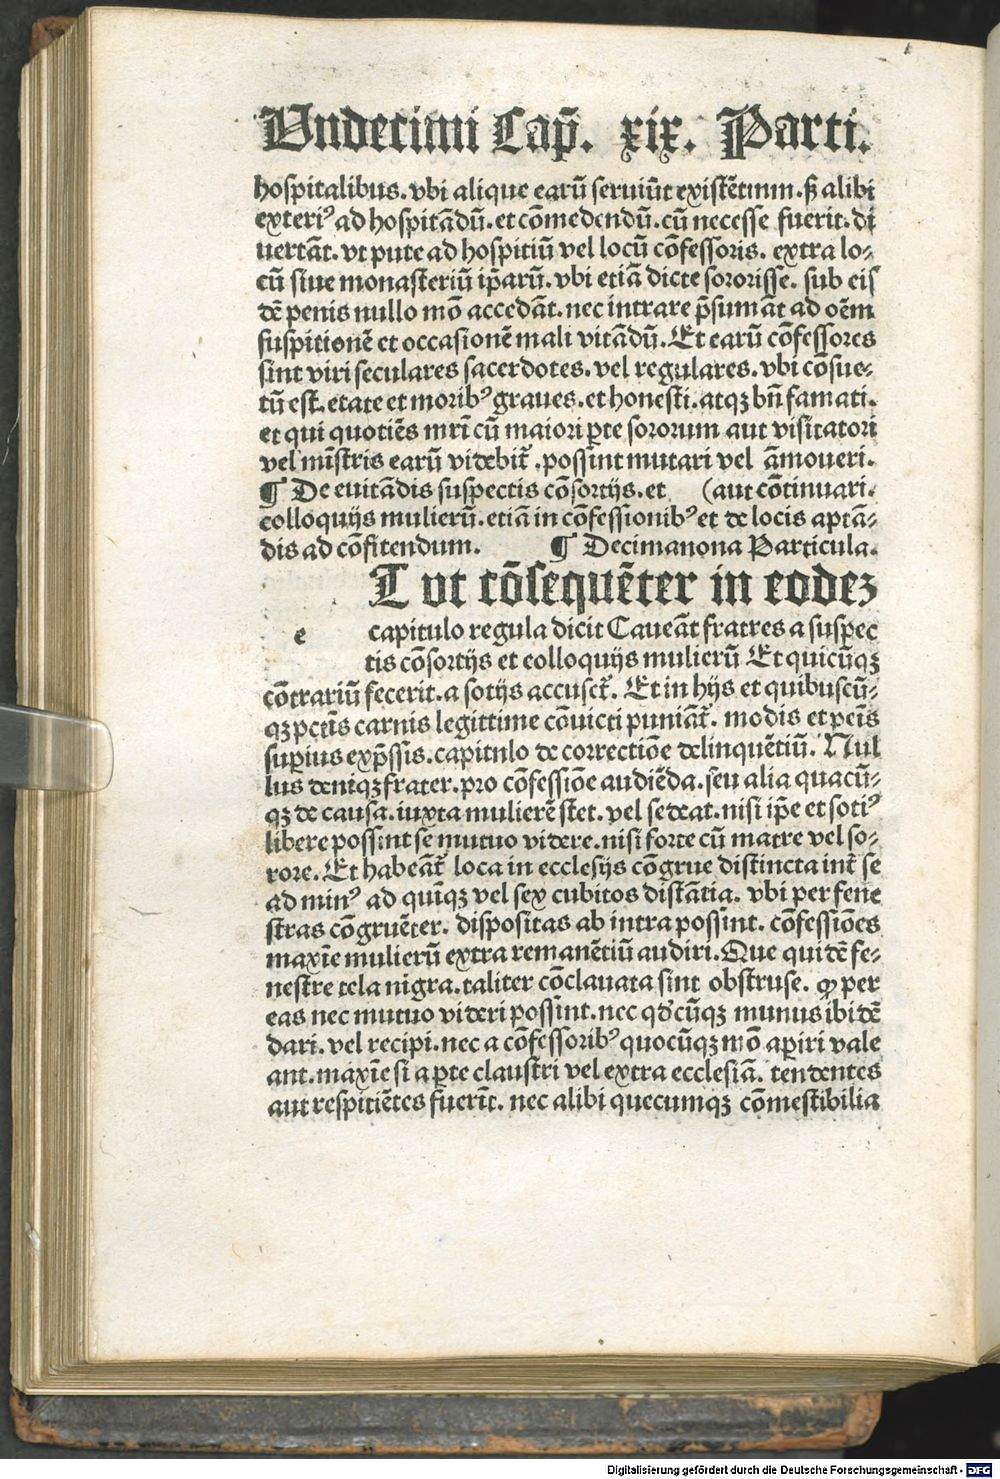 Undecimi Cap̄. xix. Parti.
hospitalibus. vbi alique earū seruiūt existētium. sꝫ alibi
exteriꝰ ad hospitādū. et cōmedendū. cū necesse fuerit. di
uertāt. vt pute ad hospitiū vel locū cōfessoris. extra lo⸗
cū siue monasteriū ip̄arū. vbi etiā dicte sororisse. sub eis
dē penis nullo mō accedāt. nec intrare p̄sumāt ad oēm
suspitionē et occasionē mali vitādū. Et earū cōfessores
sint viri seculares sacerdotes. vel regulares. vbi cōsue⸗
tū est. etate et moribꝰ graues. et honesti. atqꝫ bn̄ famati.
et qui quotiēs mr̄i cū maiori ꝑte sororum aut visitatori
vel mīstris earū videbit̄. possint mutari vel āmoueri.
¶ De euitādis suspectis cōsortijs. et (aut cōtinuari.
colloquijs mulierū. etiā in cōfessionibꝰ et de locis aptā⸗
dis ad cōfitendum. ¶ Decimanona Particula.
T vt cōsequēter in eodeꝫ
e capitulo regula dicit Caueāt fratres a suspec
tis cōsortijs et colloquijs mulierū Et quicūqꝫ
cōtrariū fecerit. a sotijs accuset̄. Et in hijs et quibuscū⸗
qꝫ pctīs carnis legittime cōuicti puniāt̄. modis et penis
suꝑius exp̄ssis. capitulo de correctiōe delinquētiū. Nul
lus deniqꝫ frater. pro cōfessiōe audiēda. seu alia quacū⸗
qꝫ de causa. iuxta mulierē stet. vel sedeat. nisi ip̄e et sotiꝰ
libere possint se mutuo videre. nisi forte cū matre vel so⸗
rore. Et habeāt̄ loca in ecclesijs cōgrue distincta int̄ se
ad minꝰ ad quīqꝫ vel sex cubitos distātia. vbi per fene
stras cōgruēter. dispositas ab intra possint. cōfessiōes
maxīe mulierū extra remanētiū audiri. Que quidē fe⸗
nestre tela nigra. taliter cōclauata sint obstruse. ꝙ per
eas nec mutuo videri possint. nec qd̓cūqꝫ munus ibidē
dari. vel recipi. nec a cōfessoribꝰ quocūqꝫ mō aꝑiri vale
ant. maxīe si a ꝑte claustri vel extra ecclesiā. tendentes
aut respitiētes fuerīt. nec alibi quecumqꝫ cōmestibilia
Digitalisierung gefördert durch die Deutsche Forschungsgemeinschaft - DFG